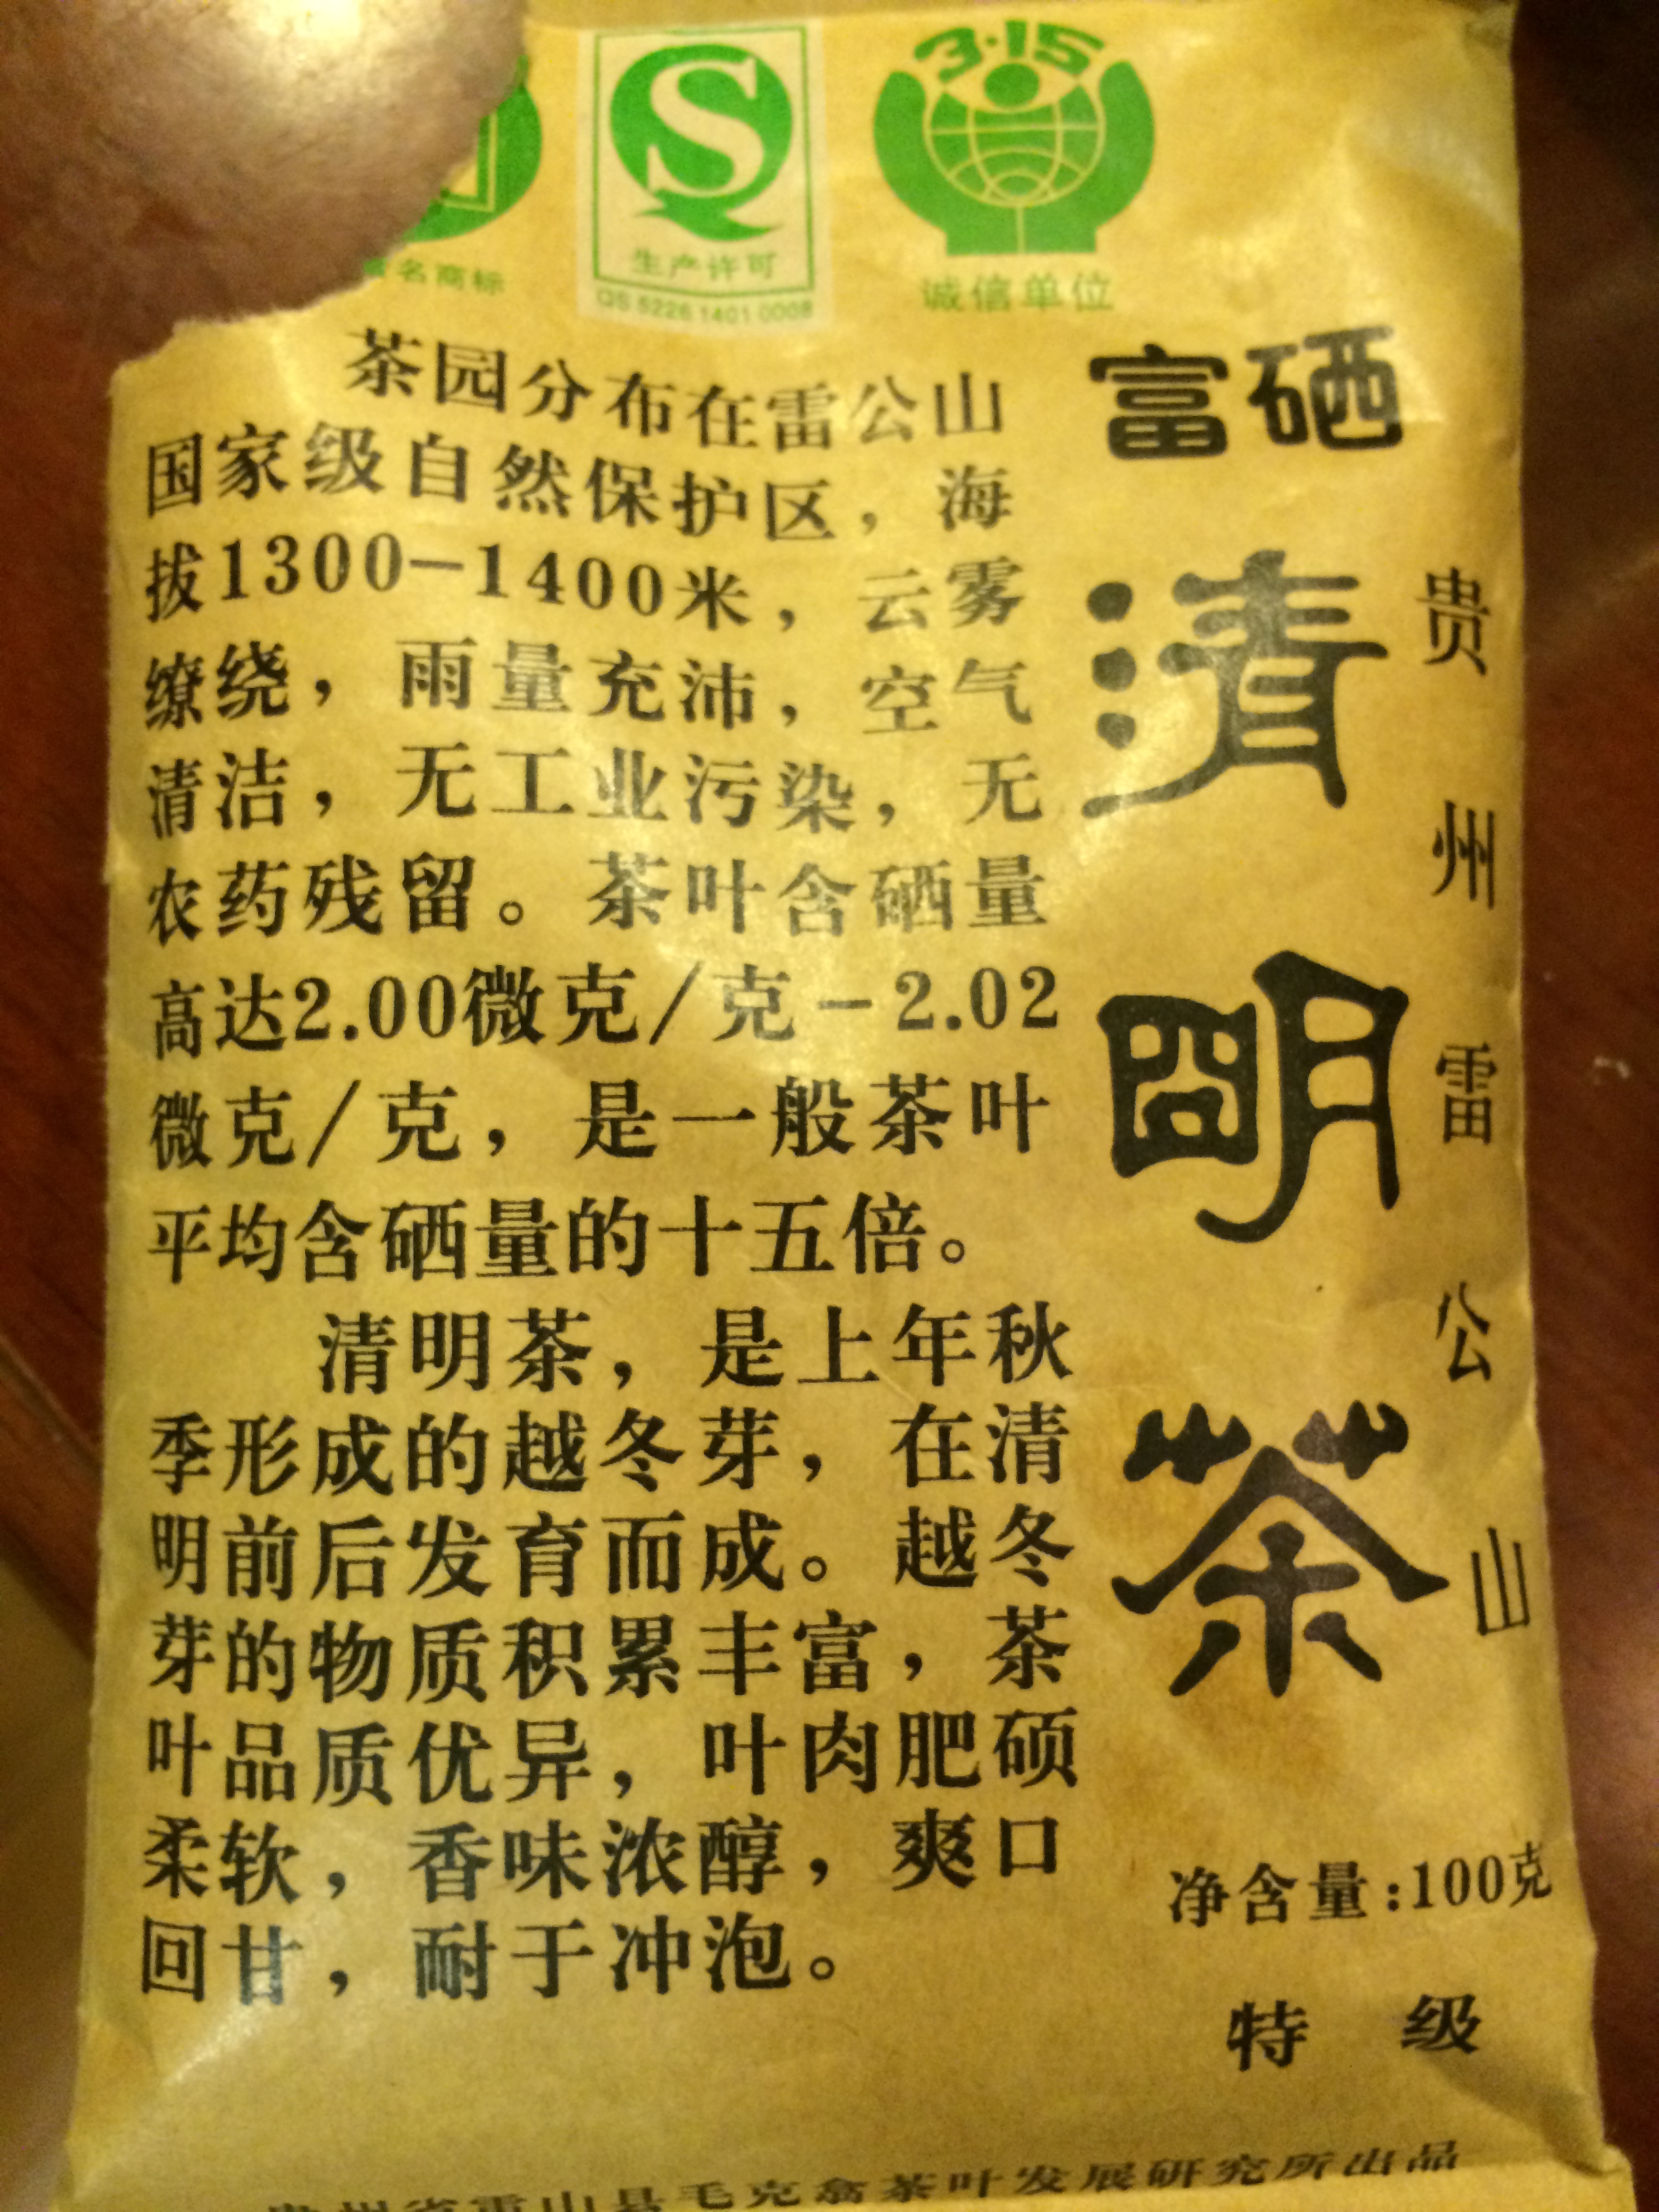 3·15
生产许可
QS 5226 1401 0008
名商标
诚信单位
富硒
清明茶
贵州雷公山
茶园分布在雷公山
国家级自然保护区，海
拔1300—1400米，云雾
缭绕，雨量充沛，空气
清洁，无工业污染，无
农药残留。茶叶含硒量
高达2.00微克/克－2.02
微克/克，是一般茶叶
平均含硒量的十五倍。
清明茶，是上年秋
季形成的越冬芽，在清
明前后发育而成。越冬
芽的物质积累丰富，茶
叶品质优异，叶肉肥硕
柔软，香味浓醇，爽口
回甘，耐于冲泡。
净含量:100克
特级
贵州省雷山县毛克翕茶叶发展研究所出品